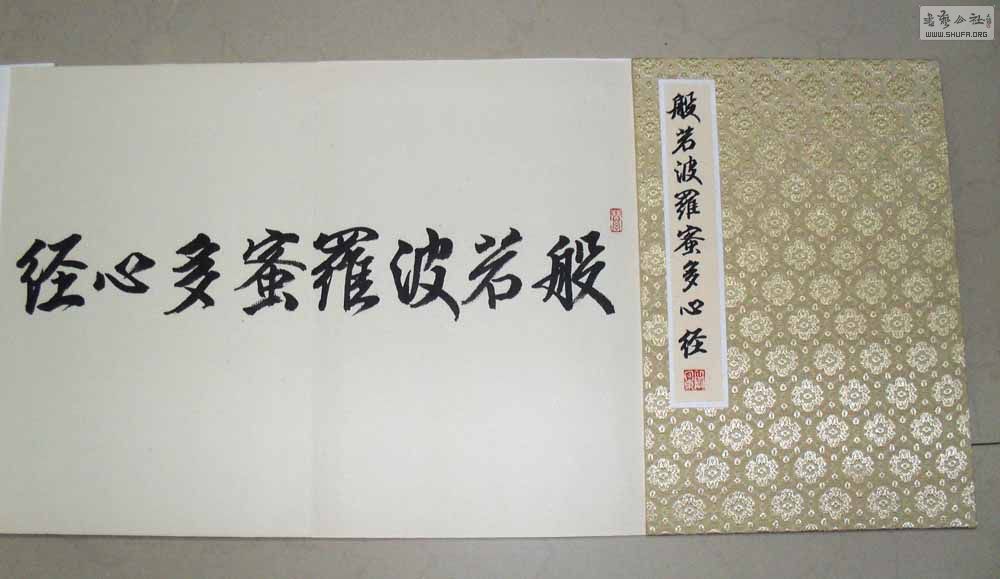 般若波羅蜜多心经
般若波羅蜜多心经
书艺公社
WWW.SHUFA.ORG